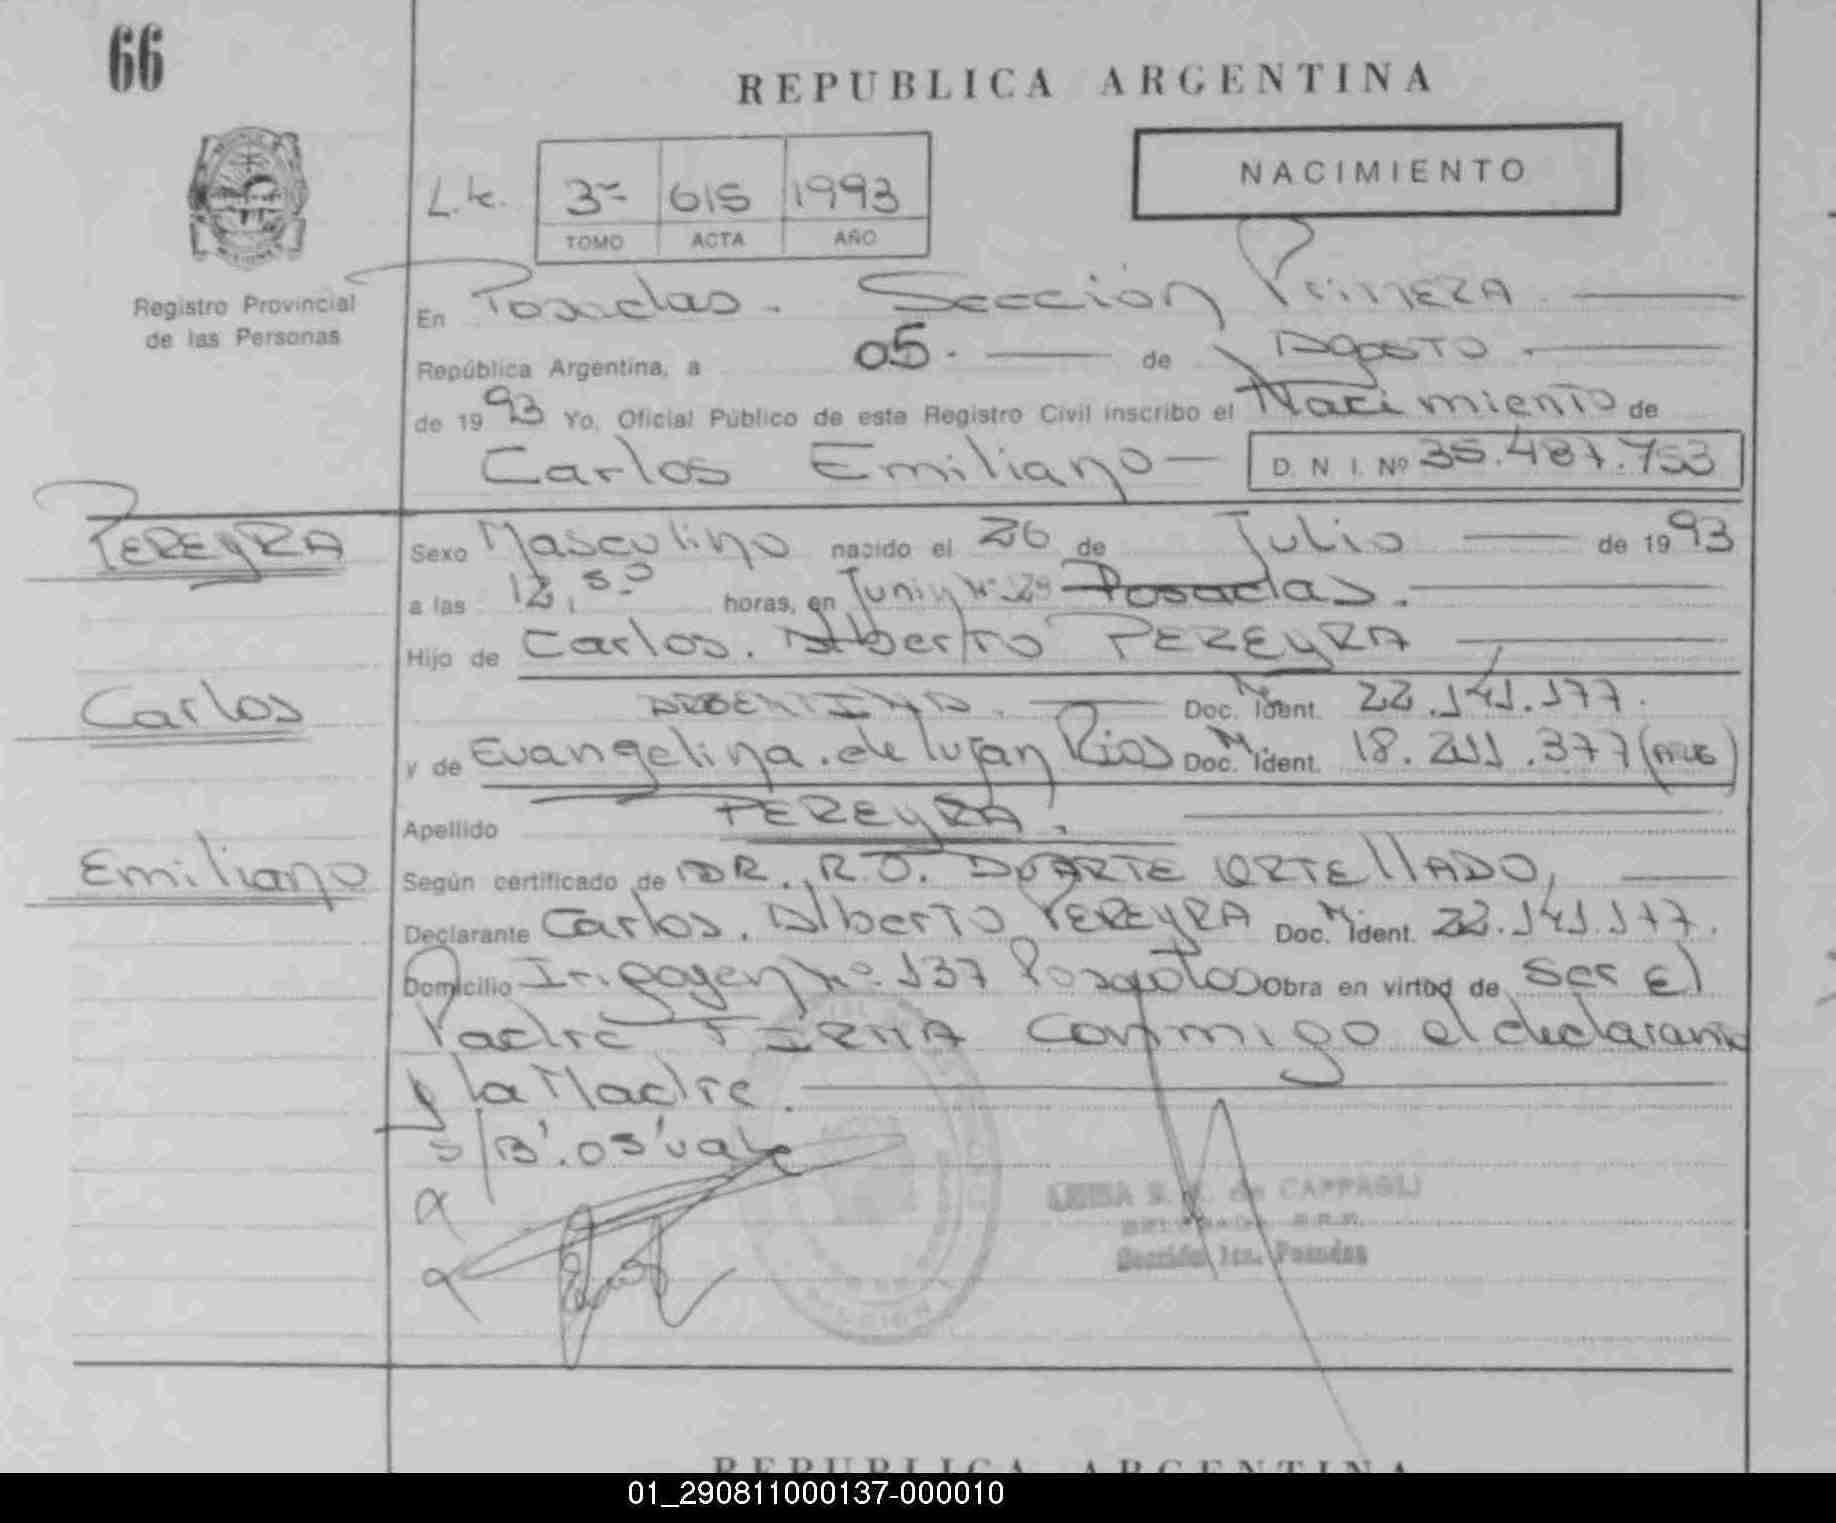 66
REPUBLICA ARGENTINA
NACIMIENTO
3º 615 1993
TOMO ACTA AÑO
Registro Provincial
de las Personas
En Posadas. Sección Primera
República Argentina, a 05. de Agosto
de 1993 Yo, Oficial Público de este Registro Civil inscribo el Nacimiento de
Carlos Emiliano D N I. Nº 35.487.753
PEREYRA
Sexo Masculino nacido el 26 de Julio de 1993
a las 12,50 horas, en Junin Nº Posadas.
Hijo de Carlos. Alberto PEREYRA
Carlos
ARGENTINA. Doc. Ident. 22.141.177.
y de Evangelina. de lujan Rios Doc. Ident. 18.211.377 (ARG)
Apellido PEREYRA.
Emiliano
Según certificado de DR. R.O. DUARTE ORTELLADO,
Declarante Carlos. Alberto PEREYRA Doc. Ident. 22.141.177.
Domicilio Irigoyen Nº 137 Posadas Obra en virtud de ser El
Padre FIRMA conmigo el declarante
y la Madre.
s/B'.05'vale
de CAPPAGLI
Sección 1ra. Posadas
REPUBLICA ARGENTINA
01_290811000137-000010